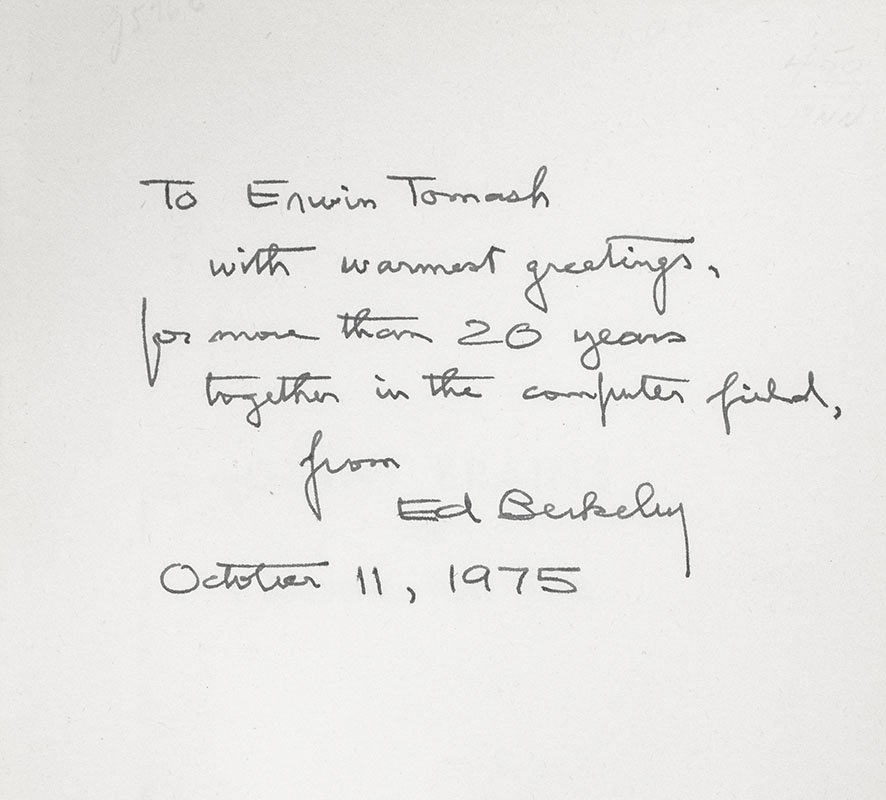 To Erwin Tomash
with warmest greetings,
for more than 20 years
together in the computer field,
from
Ed Berkeley
October 11, 1975